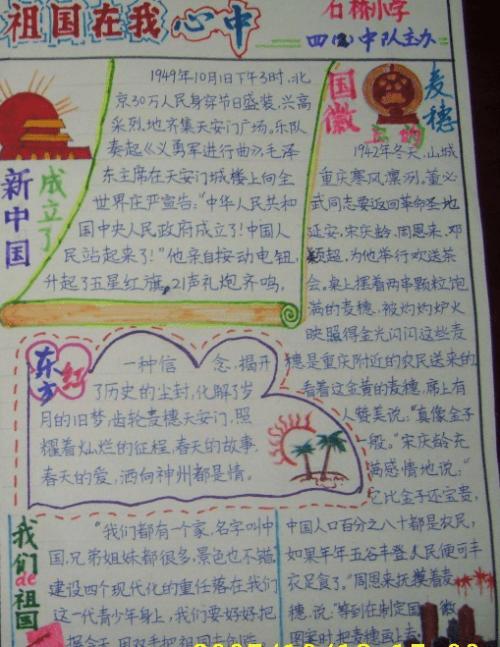 祖国在我心中
石桥小学
四(2)中队主办
新中国
成立了
1949年10月1日下午3时,北
京30万人民身穿节日盛装,兴高
采烈地齐集天安门广场。乐队
奏起《义勇军进行曲》,毛泽
东主席在天安门城楼上向全
世界庄严宣告:"中华人民共和
国中央人民政府成立了!中国人
民站起来了!"他亲自按动电钮,
升起了五星红旗,21声礼炮齐鸣,
国徽
上的
麦穗
1942年冬天,山城
重庆寒风凛冽,董必
武同志要返回革命圣地
延安,宋庆龄、周恩来、邓
颖超,为他举行欢送茶
会,桌上摆着两串颗粒饱
满的麦穗,被灼灼炉火
映照得金光闪闪这些麦
穗是重庆附近的农民送来的
看着这金黄的麦穗,席上有
人赞美说:"真像金子
一般。"宋庆龄充
满感情地说:"
它比金子还宝贵,
中国人口百分之八十都是农民,
如果年年五谷丰登,人民便可丰
衣足食了。"周恩来抚摸着麦
穗,说:"等到在制定国徽
图案时,把麦穗画上去
东方红
一种信念,揭开
了历史的尘封,化解了岁
月的旧梦,齿轮麦穗天安门,照
耀着灿烂的征程,春天的故事,
春天的爱,洒向神州都是情。
我们de祖国
"我们都有一个家,名字叫中
国,兄弟姐妹都很多,景色也不错,
建设四个现代化的重任落在我们
这一代青少年身上,我们要好好把